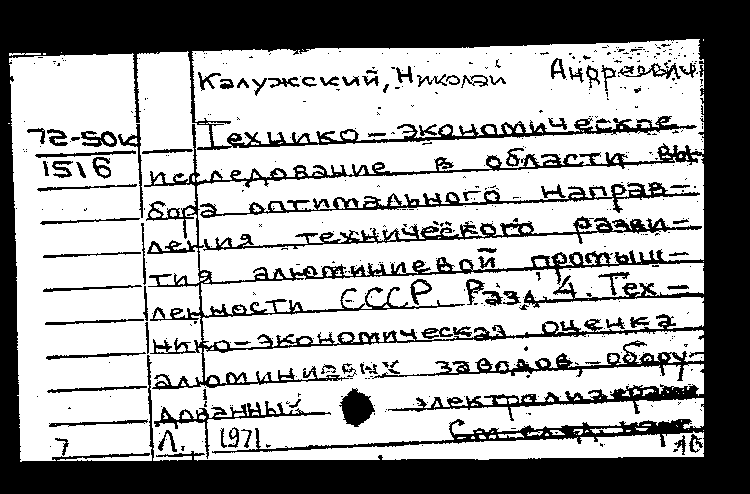 Калужский, Николай Андреевич
72-50к Технико-экономическое
1516 исследование в области вы-
бора оптимального направ-
ления технического разви-
тия алюминиевой промыш-
ленности СССР. Разд. 4. Тех-
нико-экономическая оценка
алюминиевых заводов, обору-
дованных электролизерами
7 Л., 1971. См. след. карт.
10